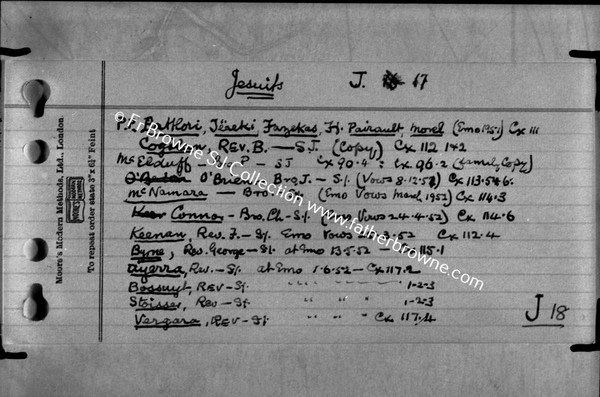 Jesuits J. 17
P.P. Batllori, Jéréki Fazekas, Fr. Pairault, Morel (Emo 1951) Cx 111
Coghlan, REV. B. — S.J. (Copy) Cx 112 1+2
McElduff - Sj. P - SJ Cx 90.9 : Cx 96.2 (family, Copy)
O'Brien, Bro J. - Sj. (Vows 8.12.51) Cx 113.5+6.
McNamara — Bro - Sj. (Emo Vows March, 1952) Cx 114.3
Connor - Bro. Ch - Sj. Vows 2.4.4.52) Cx 114.6
Keenan, Rev. F. - Sj. Emo Vows 3.52 Cx 112.4
Byrne, Rev. George - Sj. at Emo 13.5.52 — 115.1
Ayerra, Rev. - Sj. at Emo 1.6.52 — Cx 117.2
Bossuyt, REV - Sj. " " " 1-2-3
Stoisser, Rev - Sj. " " " 1-2-3
Vergara, REV - Sj. " " " Cx 117.4
J 18
Moore's Modern Methods, Ltd., London.
To repeat order state 5"x 6¼" Feint
© Fr Browne SJ Collection www.fatherbrowne.com